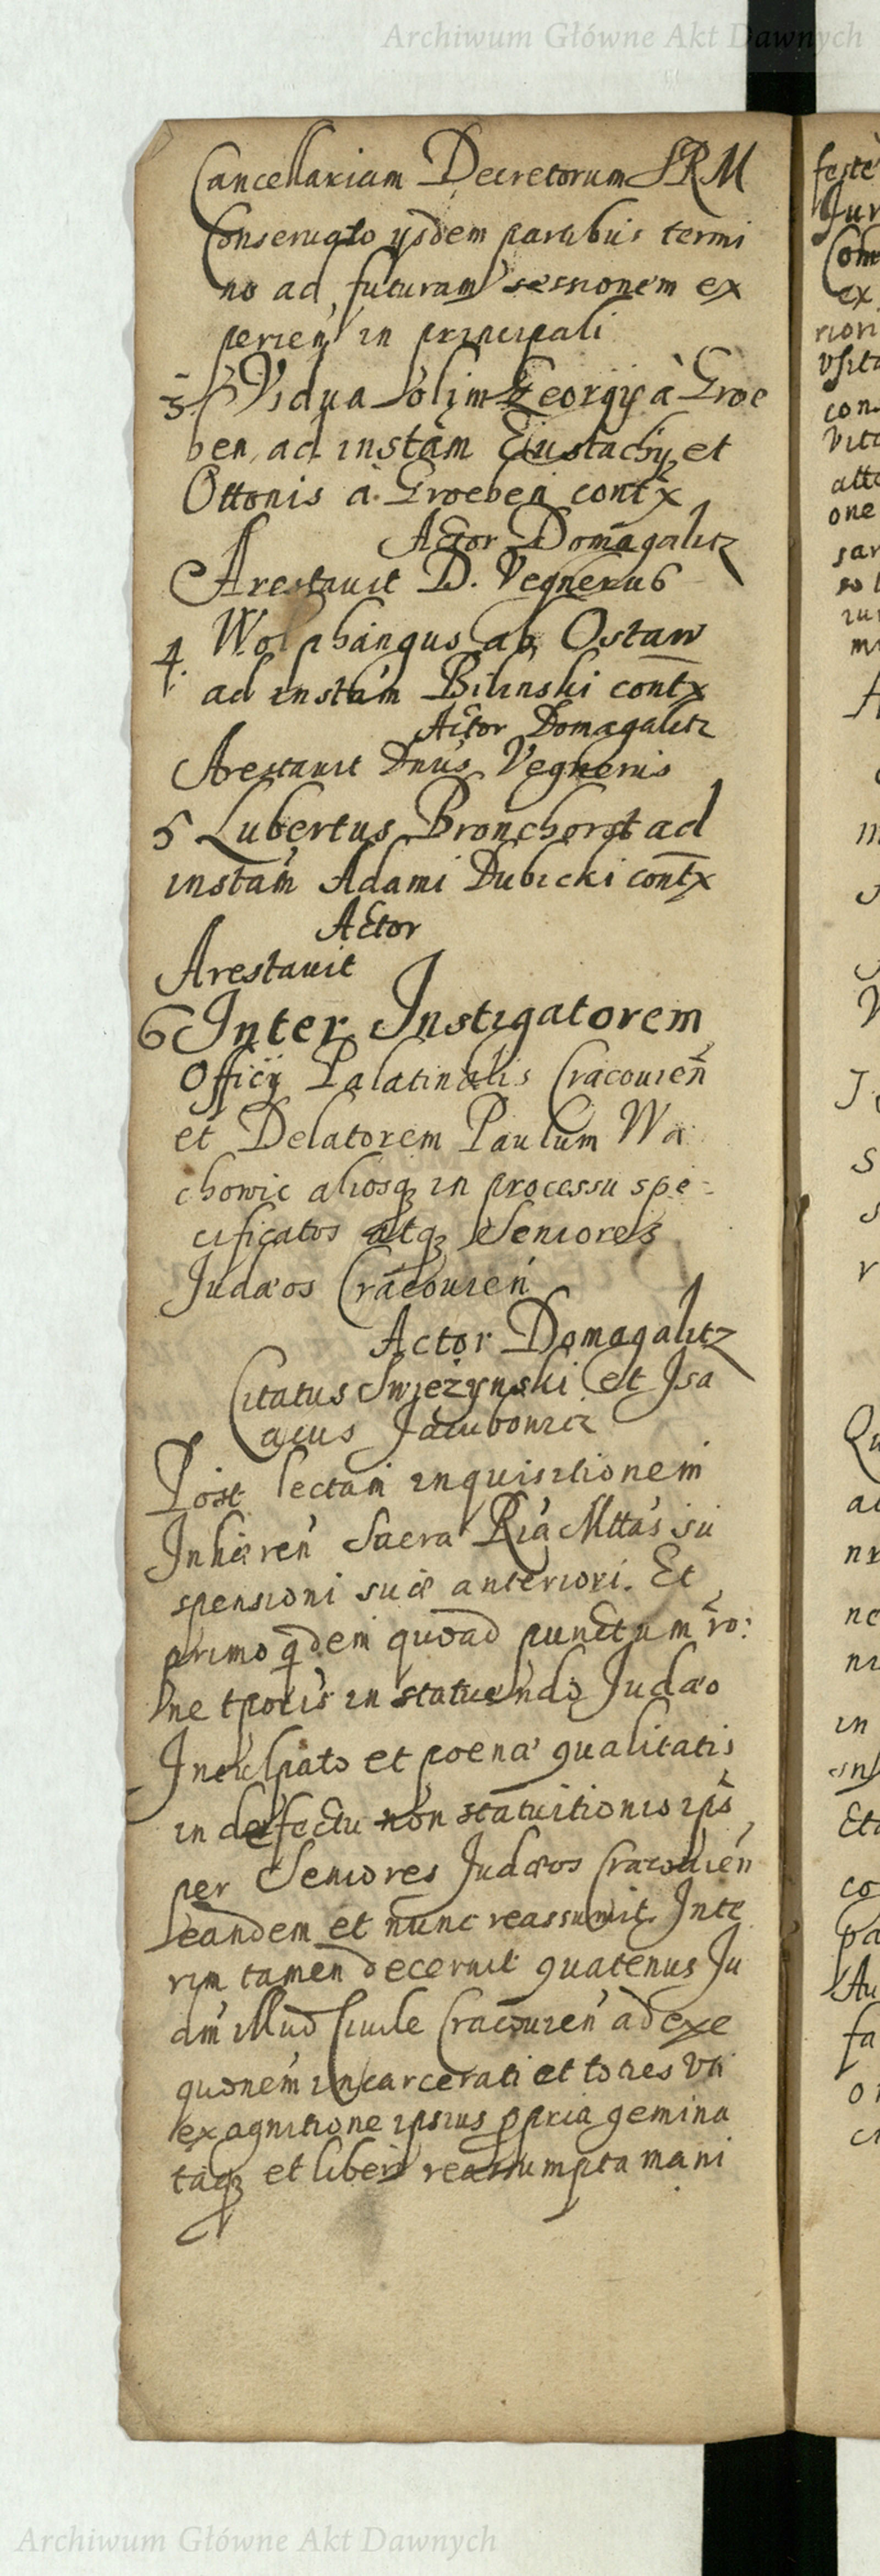 Archiwum Główne Akt Dawnych
Cancellariam Decretorum SRM
Conseruato ijsdem partibus termi
no ad futuram sessionem ex
perien in principali
3 Vidua olim Georgij à Groe
ben ad instam Eustachij et
Ottonis à Groeben contx
Actor Domagalicz
Arestauit D. Vegnerus
4. Wolphangus ab Ostaw
ad instam Bilinski contx
Actor Domagalicz
Arestauit Dnus Vegnerus
5 Lubertus Bronchorst ad
instam Adami Dubicki contx
Actor
Arestauit
6 Inter Instigatorem
Officij Palatinalis Cracouien
et Delatorem Paulum Wa
chowic aliosq in processu spe-
cificatos atq Seniores
Judæos Cracouien
Actor Domagalicz
Citatus Swiezynski et Isa
acus Jacubowicz
Post lectam inquisitionem
Inhæren Sacra Ria Mttas su
spensioni suæ anteriori. Et
primo qdem quoad punctum ro:
ne tporis in statuendo Judæo
Inculpato et poena qualitatis
in defectu non statuitionis ips
per Seniores Judæos Cracouien
eandem et nunc reassumit. Inte
rim tamen decernit quatenus Ju
dm illud Ciuile Cracouien ad exe
quonem incarcerati et toties vti
ex agnitione ipsius ppria gemina
taq et liber reassumpta mani
feste
Jur
Com
ex
con
one
in
co
pa
fa
Archiwum Główne Akt Dawnych